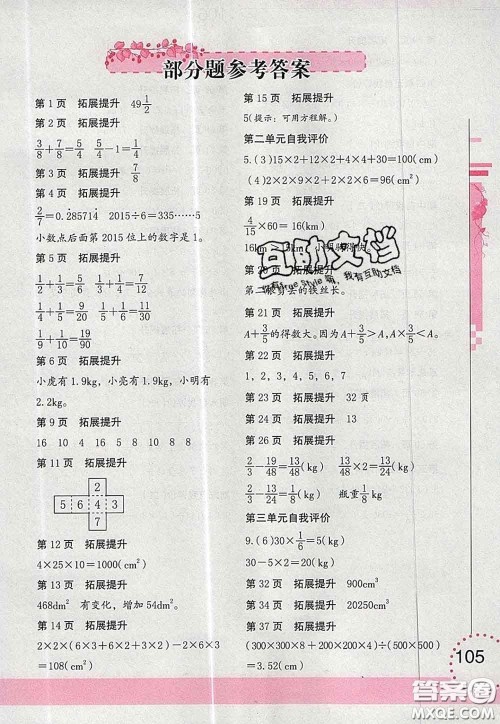 部分题参考答案
第1页 拓展提升 49 1/2
第2页 拓展提升
3/8+5/8=7/8+5/4-1=1/4
第3页 拓展提升 7/8
第4页 拓展提升
2/7=0.285714 2015÷6=335……5
小数点后面第2015位上的数字是1。
第5页 拓展提升
1/2+1/3=5/6 1/5+1/6=11/30
1/7+1/8=15/56 1/9+1/10=19/90
第6页 拓展提升
小虎有1.9kg，小亮有1.9kg，小明有
2.2kg。
第9页 拓展提升
16 10 4 16 8 8 10 10
第11页 拓展提升
2
5 6 4 3
7
第12页 拓展提升
4×25×10=1000(cm²)
第13页 拓展提升
468dm² 有变化，增加54dm²。
第14页 拓展提升
2×(2×6×3+6×2+3×2)-2×6×3
=108(cm²)
第15页 拓展提升
5(提示：可用方程解。)
第二单元自我评价
5.(3)15×2+12×2+4×4+30=100(cm)
(4)2×2×9+2×2×6+6×6=96(cm²)
第19页 拓展提升
4/15×60=16(km)
16km>15km
拓展提升
第二根剪去的铁丝长。
第21页 拓展提升
A÷3/5的得数大。因为A÷3/5>A，A×3/5<A。
第22页 拓展提升
1，2，3，4，5，7
第23页 拓展提升 32页
第24页 拓展提升
第26页 拓展提升
2/3-19/48=13/48(kg) 13/48×2=13/24(kg)
2/3-13/24=1/8(kg) 瓶重1/8kg
第三单元自我评价
9.(6)30×1/6=5(kg)
30-5×2=20(kg)
第32页 拓展提升 900cm³
第34页 拓展提升 20250cm³
第37页 拓展提升
(300×300×200+200×200×200×4)÷(500×500)
=3.52(cm)
105
互助文档
我有互助文档
答案圈
MXQE.COM